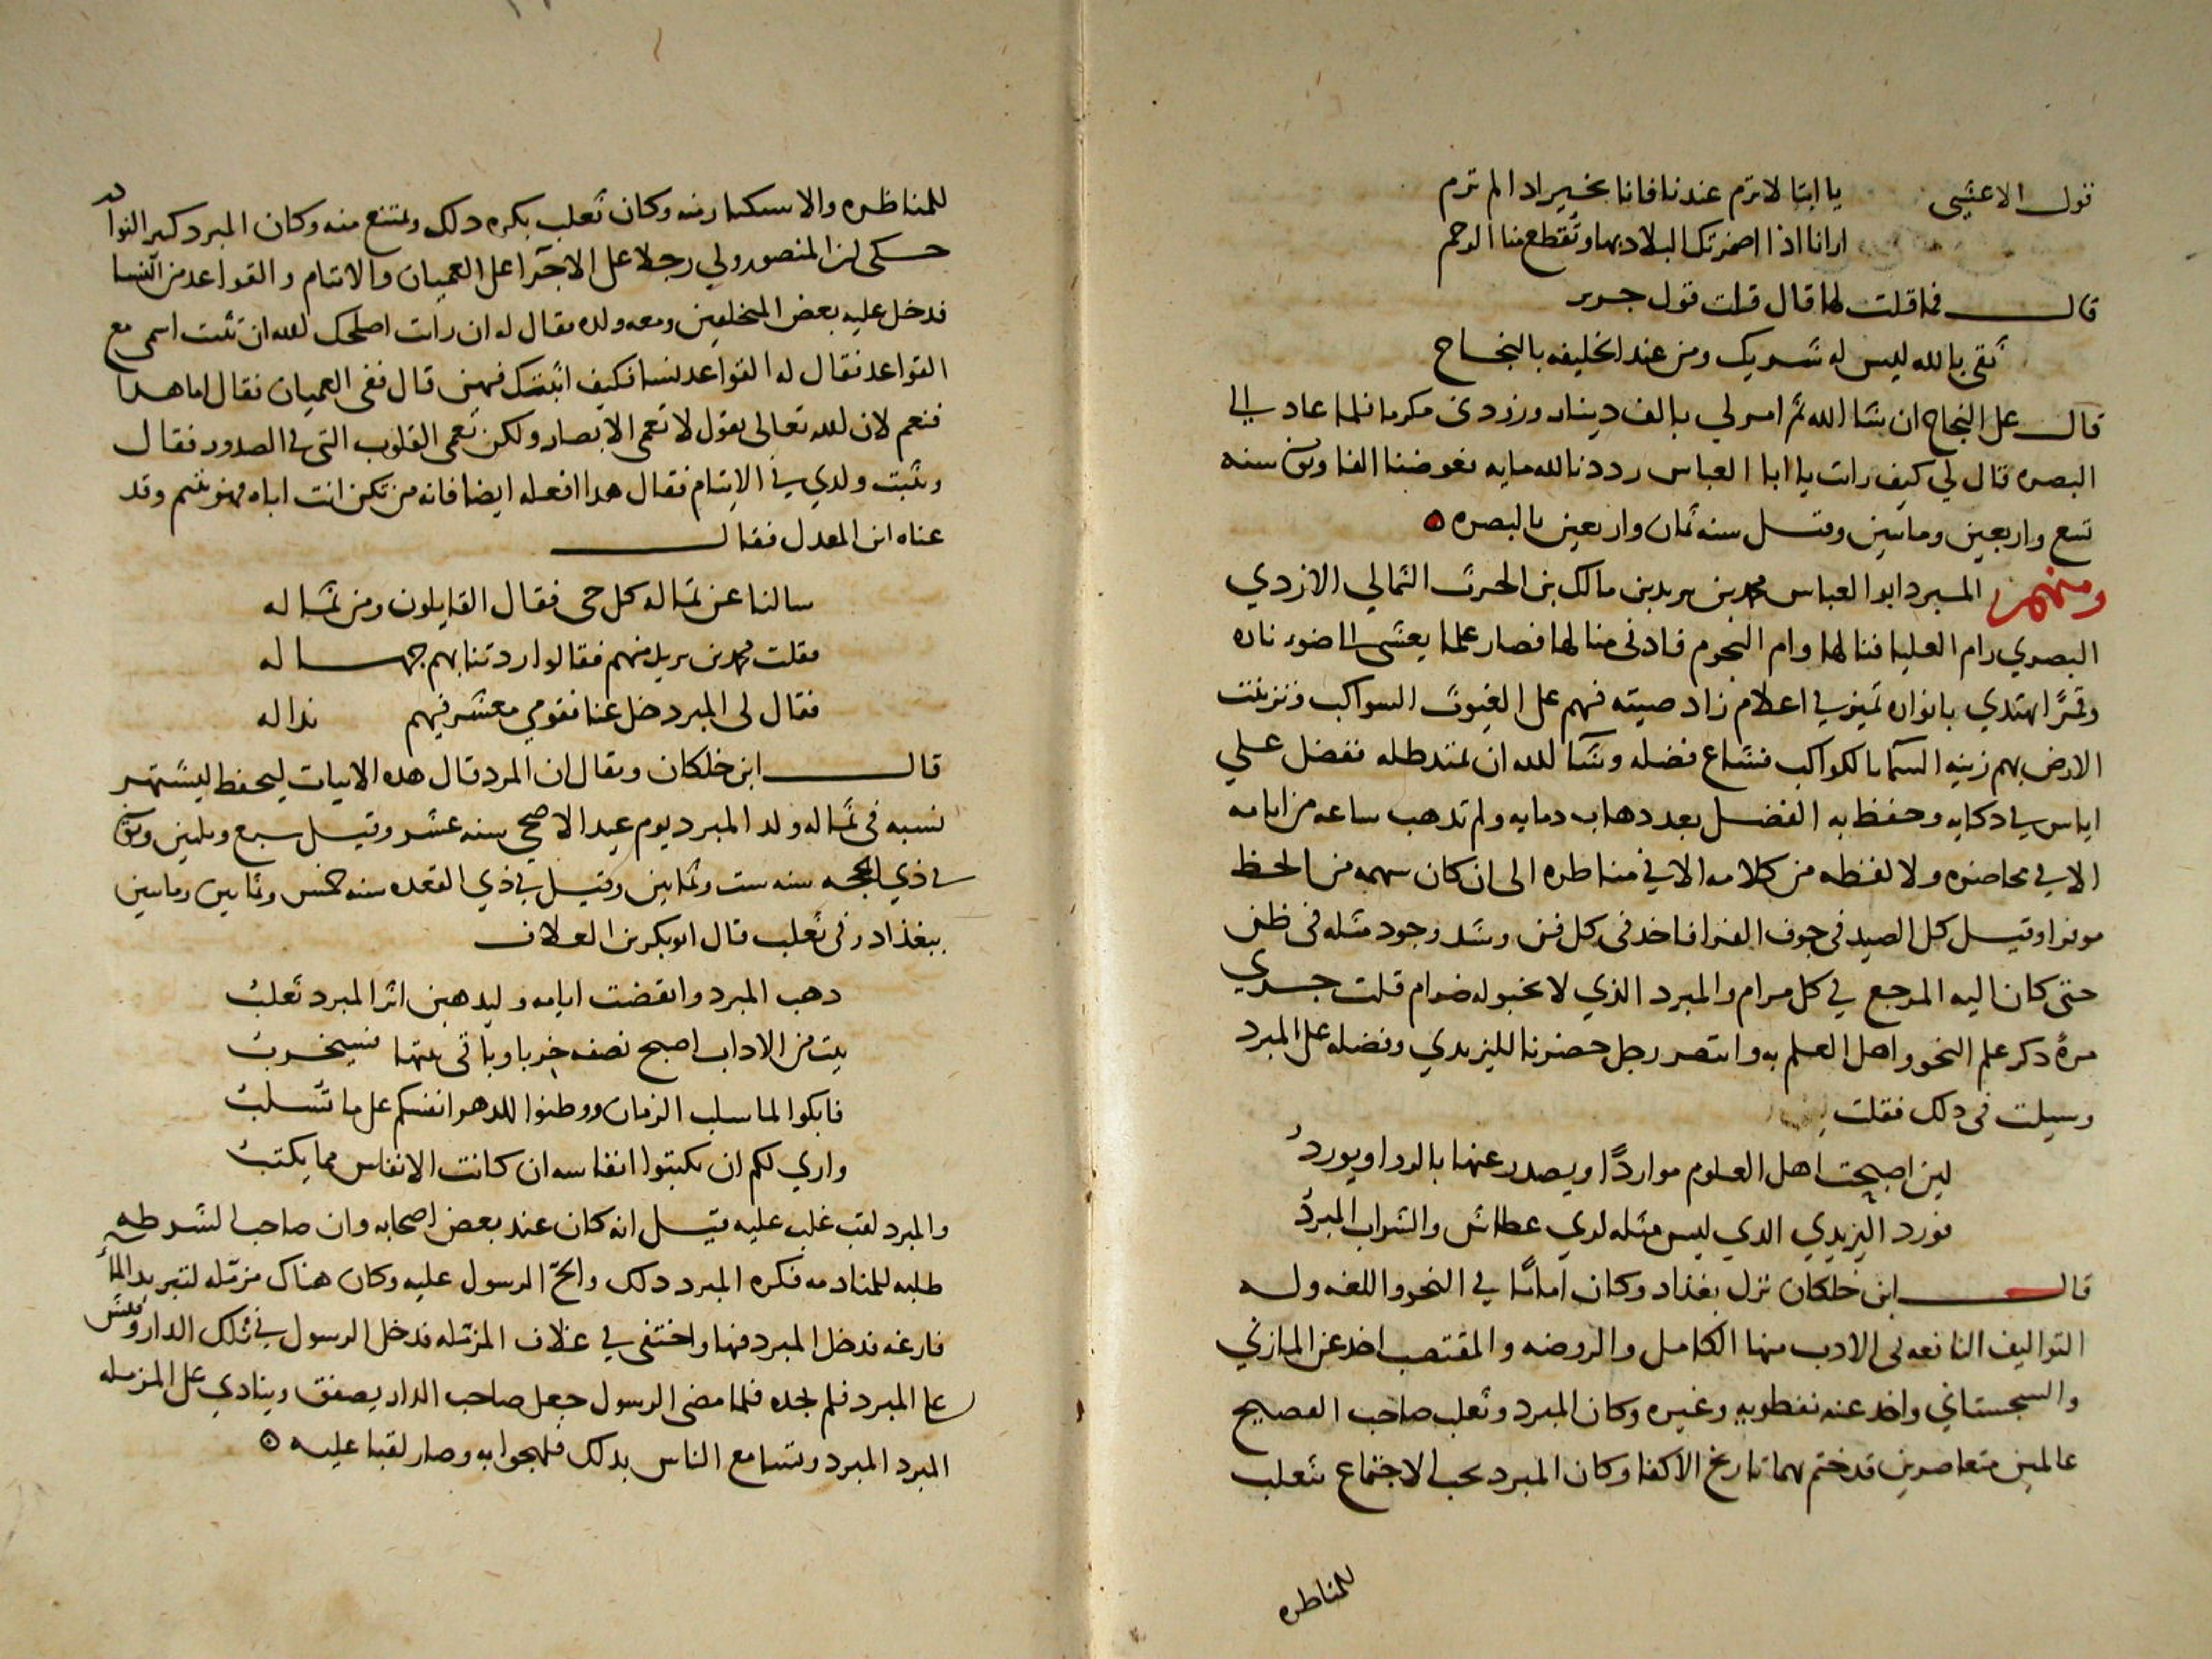 قول الاعشى يا ابتا لا ترم عندنا فانا بخير اذا لم ترم
ارانا اذا اضمرتك البلاد بها وتقطع منا الرحم
قال فما قلت لها قال قلت قول جرير
ثقى بالله ليس له شريك ومن عند الخليفه بالنجاح
قال على النجاح ان شا الله ثم امر لي بالف دينار وردني مكرما فلما عاد الى
البصره قال لي كيف رات يا ابا العباس رددنا لله مايه فعوضنا الفا وتوفى سنه
تسع واربعين وماتين وقيل سنه ثمان واربعين بالبصره ه
ومنهم المبرد ابو العباس محمد بن يزيد بن مالك بن الحرث الثمالي الازدي
البصري رام العليا فنالها وام النجوم فادنى منالها فصار علما يعشى الى ضوء ناره
وقمرًا يهتدي بانواره في اعلام زاد صيته فهم على الغيوث السواكب وتزينت
الارض بهم زينه السما بالكواكب فشاع فضله وشا الله ان يمتد ظله ففضل على
اياس في دكايه وحفظ به الفضل بعد دهاب دمايه ولم تدهب ساعه من ايامه
الا في محاضره ولا لفظه من كلامه الا في مناظره الى ان كان سهمه من الحظ
موفرا وقيل كل الصيد في جوف الفرا فاخد في كل فن وشد وجود مثله في ظن
حتى كان اليه المرجع في كل مرام والمبرد الذي لا يخبو له ضرام قلت جري
مرة دكر علم النحو واهل العلم به وانتصر رجل حضرنا لليزيدي وفضله على المبرد
وسيلت في دلك فقلت
لين اصبحت اهل العلوم مواردًا ويصدر عنها بالردا ويورد
فورد اليزيدي الدي ليس مثله لدي عطاش والشراب المبرد
قال ابن خلكان نزل بغداد وكان امامًا في النحو واللغه وله
التواليف النافعه في الادب منها الكامل والروضه والمقتضب اخد عن المازني
والسجستاني واخد عنه نفطويه وغيره وكان المبرد وثعلب صاحب الفصيح
عالمين متعاصرين قد ختم بهما تاريخ الاكفا وكان المبرد يحب الاجتماع بثعلب
للمناظره
للمناظره والاستكثار منه وكان ثعلب يكره دلك ويمتنع منه وكان المبرد كثير النوادر
حكى ان المنصور ولي رجلا على الاجرا على العميان والايتام والقواعد من النسا
فدخل عليه بعض المتخلفين ومعه ولده فقال له ان رات اصلحك الله ان تثبت اسمي مع
القواعد فقال له القواعد نسا فكيف اثبتك فيهن قال ففي العميان فقال اما هدا
فنعم لان لله تعالى يقول لا تعمى الابصار ولكن تعمى القلوب التى في الصدور فقال
وتثبت ولدي في الايتام فقال هدا افعله ايضا فانه من تكن انت اباه فهو يتيم وقد
عناه ابن المعدل فقال
سالنا عن ثماله كل حى فقال القايلون ومن ثماله
فقلت محمد بن يزيد منهم فقالوا زدتنا بهم جهاله
فقال لى المبرد خل عنا فقومي معشر فيهم نداله
قال ابن خلكان ويقال ان المبرد قال هده الابيات ليحفظ ليشتهر
نسبه في ثماله ولد المبرد يوم عيد الاضحى سنه عشر وقيل سبع وماتين وتوفى
في ذي الحجه سنه ست وثمانين وقيل في ذي القعده سنه خمس وثمانين وماتين
ببغداد وفى ثعلب قال ابو بكر بن العلاف
دهب المبرد وانقضت ايامه وليدهبن اثر المبرد ثعلب
بيت من الاداب اصبح نصفه خربا وباقى بيتها فسيخرب
فابكوا لما سلب الزمان ووطنوا للدهر انفسكم على ما تسلب
واري لكم ان تكتبوا انفاسه ان كانت الانفاس مما يكتب
والمبرد لقب غلب عليه قيل انه كان عند بعض اصحابه وان صاحب الشرطه
طلبه للمنادمه فكره المبرد دلك والحّ الرسول عليه وكان هناك مزمله لتبريد الما
فارغه فدخل المبرد فيها واختفى في غلاف المزمله فدخل الرسول في تلك الدار وفتش
على المبرد فلم يجده فلما مضى الرسول جعل صاحب الدار يصفق وينادي على المزمله
المبرد المبرد وتسامع الناس بدلك فلهجوا به وصار لقبا عليه ه